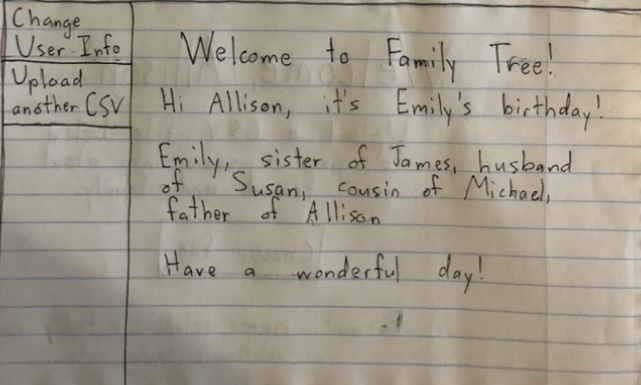 Change
User Info
Upload
another CSV
Welcome to Family Tree!
Hi Allison, it's Emily's birthday!
Emily, sister of James, husband
of Susan, cousin of Michael,
father of Allison
Have a wonderful day!